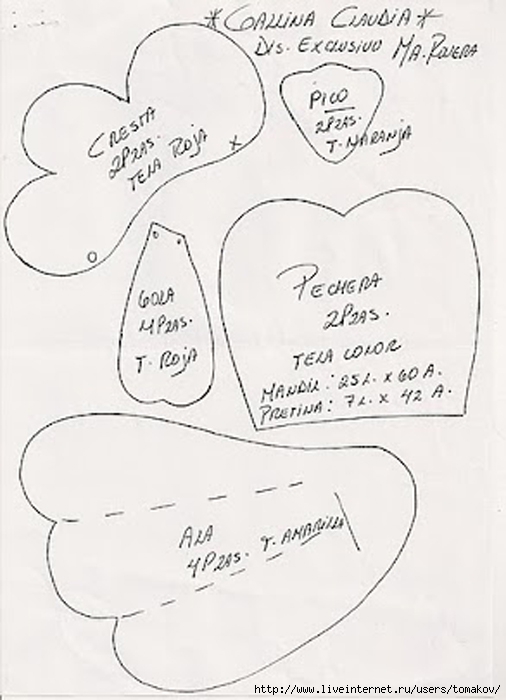 *GALLINA CLAUDIA*
DIS. EXCLUSIVO MA. RIVERA
CRESTA
2PZAS.
TELA ROJA
X
PICO
2PZAS.
T. NARANJA
GOLA
4PZAS.
T. ROJA
PECHERA
2PZAS.
TELA COLOR
MANDIL: 25 L. X 60 A.
PRETINA: 7 L. X 42 A.
ALA
4PZAS. T. AMARILLA
http://www.liveinternet.ru/users/tomakov/